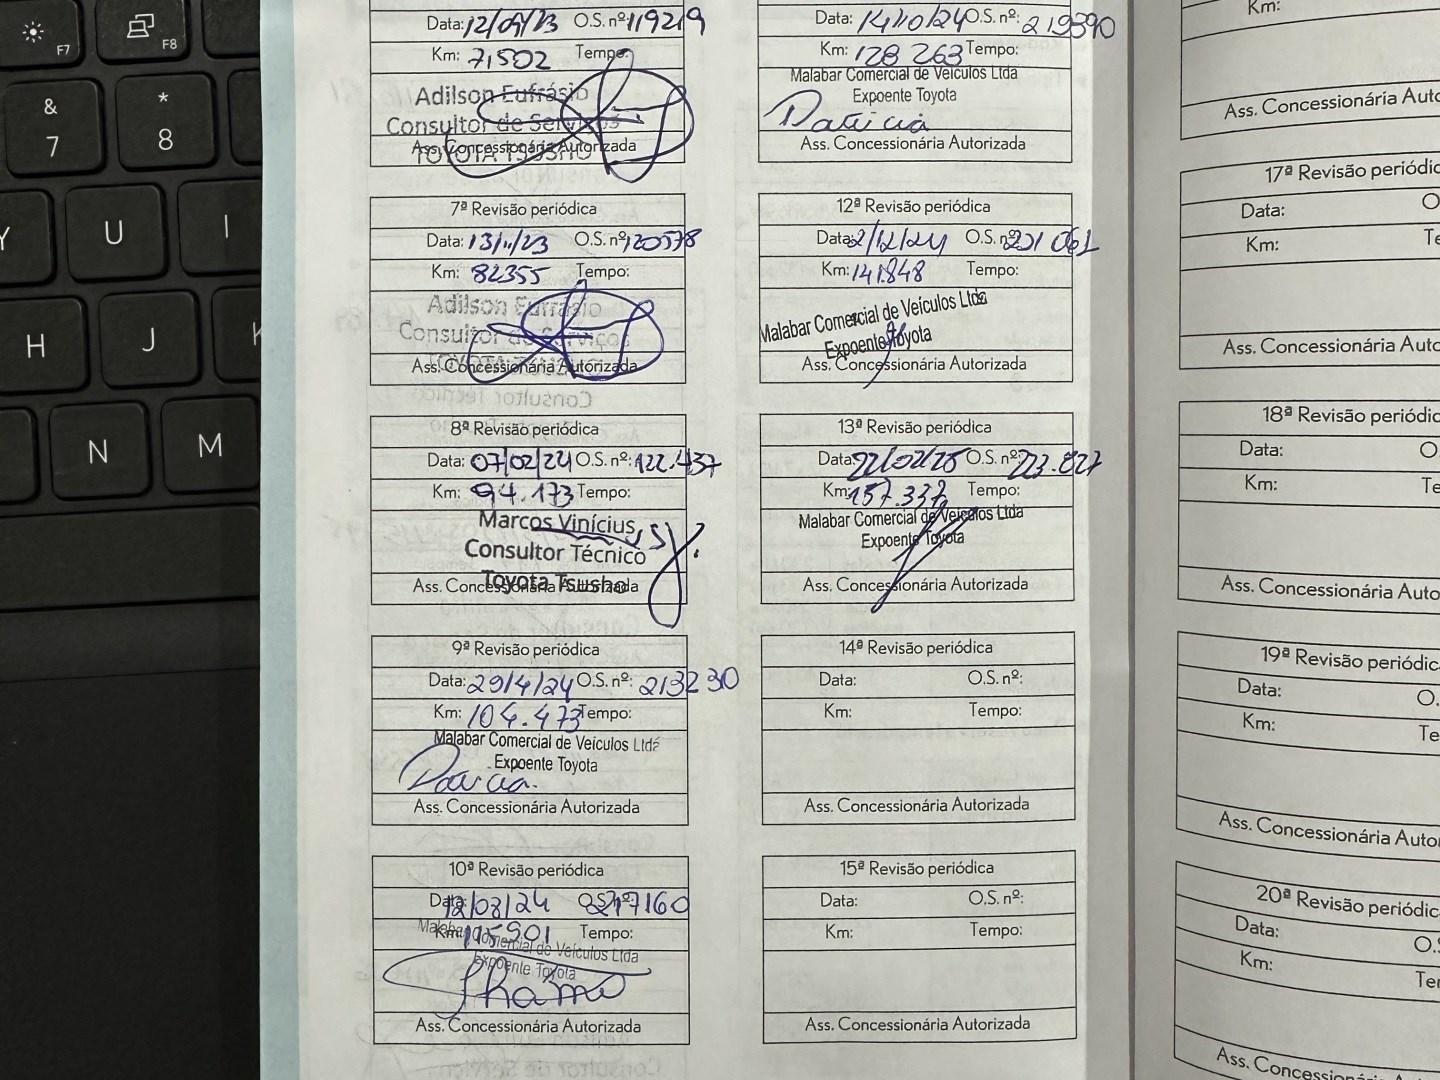 F7
F8
&
7
*
8
Y
U
I
H
J
K
N
M
Data: 12/09/23 O.S. nº: 119219
Km: 71502 Tempo:
Adilson Eufrásio
Consultor de Serviços
TOYOTA TSUSHO
Ass. Concessionária Autorizada
7ª Revisão periódica
Data: 13/11/23 O.S. nº: 120578
Km: 82355 Tempo:
Adilson Eufrásio
Consultor de Serviços
Ass. Concessionária Autorizada
8ª Revisão periódica
Data: 07/02/24 O.S. nº: 122.437
Km: 94.173 Tempo:
Marcos Vinícius
Consultor Técnico
Toyota Tsusho
Ass. Concessionária Autorizada
9ª Revisão periódica
Data: 29/4/24 O.S. nº: 213230
Km: 104.473 Tempo:
Malabar Comercial de Veículos Ltda
Expoente Toyota
Patricia
Ass. Concessionária Autorizada
10ª Revisão periódica
Data: 12/08/24 O.S. nº: 217160
Km: 115901 Tempo:
Malabar Comercial de Veículos Ltda
Expoente Toyota
Ass. Concessionária Autorizada
Data: 14/10/24 O.S. nº: 219390
Km: 128 263 Tempo:
Malabar Comercial de Veículos Ltda
Expoente Toyota
Patricia
Ass. Concessionária Autorizada
12ª Revisão periódica
Data: 2/12/24 O.S. nº: 221 061
Km: 141.848 Tempo:
Malabar Comercial de Veículos Ltda
Expoente Toyota
Ass. Concessionária Autorizada
13ª Revisão periódica
Data: 22/02/25 O.S. nº: 223.827
Km: 157.337 Tempo:
Malabar Comercial de Veículos Ltda
Expoente Toyota
Ass. Concessionária Autorizada
14ª Revisão periódica
Data: O.S. nº:
Km: Tempo:
Ass. Concessionária Autorizada
15ª Revisão periódica
Data: O.S. nº:
Km: Tempo:
Ass. Concessionária Autorizada
Km:
Ass. Concessionária Auto
17ª Revisão periódic
Data: O
Km: Te
Ass. Concessionária Auto
18ª Revisão periódic
Data: O
Km: Te
Ass. Concessionária Auto
19ª Revisão periódic
Data: O.
Km: Te
Ass. Concessionária Autor
20ª Revisão periódic
Data: O.S
Km: Ter
Ass. Concessionária Autor